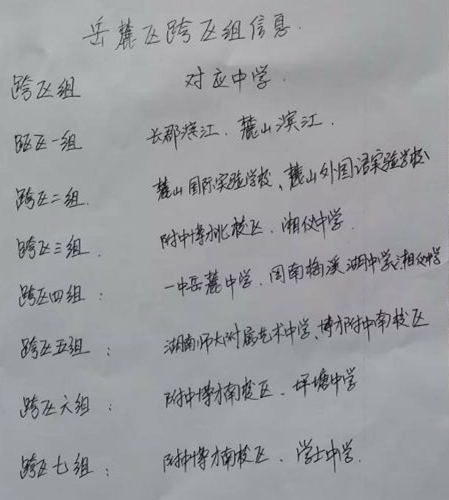 岳麓区跨区组信息.
跨区组 对应中学.
跨区一组 长郡滨江、麓山滨江.
跨区二组. 麓山国际实验学校、麓山外国语实验学校
跨区三组: 附中博才北校区、湘仪中学.
跨区四组: 一中岳麓中学、周南梅溪湖中学、湘仪中学
跨区五组: 湖南师大附属艺术中学、博才附中南校区
跨区六组: 附中博才南校区、坪塘中学
跨区七组: 附中博才南校区、学士中学.